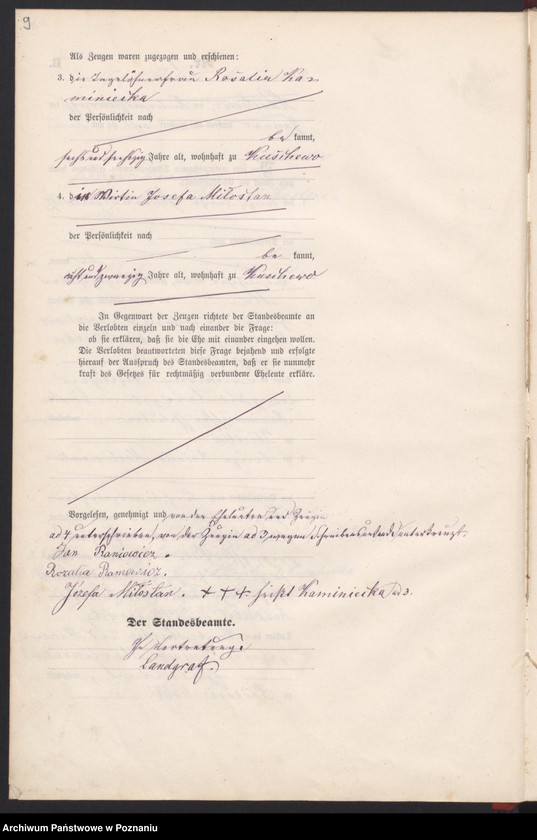 9
Als Zeugen waren zugezogen und erschienen:
3. die Tagelöhnerfrau Rosalia Ka-
miniecka
der Persönlichkeit nach
be kannt,
sechsundsechszig Jahre alt, wohnhaft zu Kuschewo
4. die Wirtin Josefa Miloslan
der Persönlichkeit nach
be kannt,
achtundzwanzig Jahre alt, wohnhaft zu Kuschewo
In Gegenwart der Zeugen richtete der Standesbeamte an
die Verlobten einzeln und nach einander die Frage:
ob sie erklären, daß sie die Ehe mit einander eingehen wollen.
Die Verlobten beantworteten diese Frage bejahend und erfolgte
hierauf der Ausspruch des Standesbeamten, daß er sie nunmehr
kraft des Gesetzes für rechtmäßig verbundene Eheleute erkläre.
Vorgelesen, genehmigt und von den Eheleuten und Zeugin
ad 4 unterschrieben, von der Zeugin ad 3 wegen Schreibensunkunde unterkreuzt.
Jan Raniewicz.
Rozalia Raniewicz.
Józefa Miloslan. +++ heißt Kaminiecka ad 3.
Der Standesbeamte.
In Vertretung.
Landgraf.
Archiwum Państwowe w Poznaniu